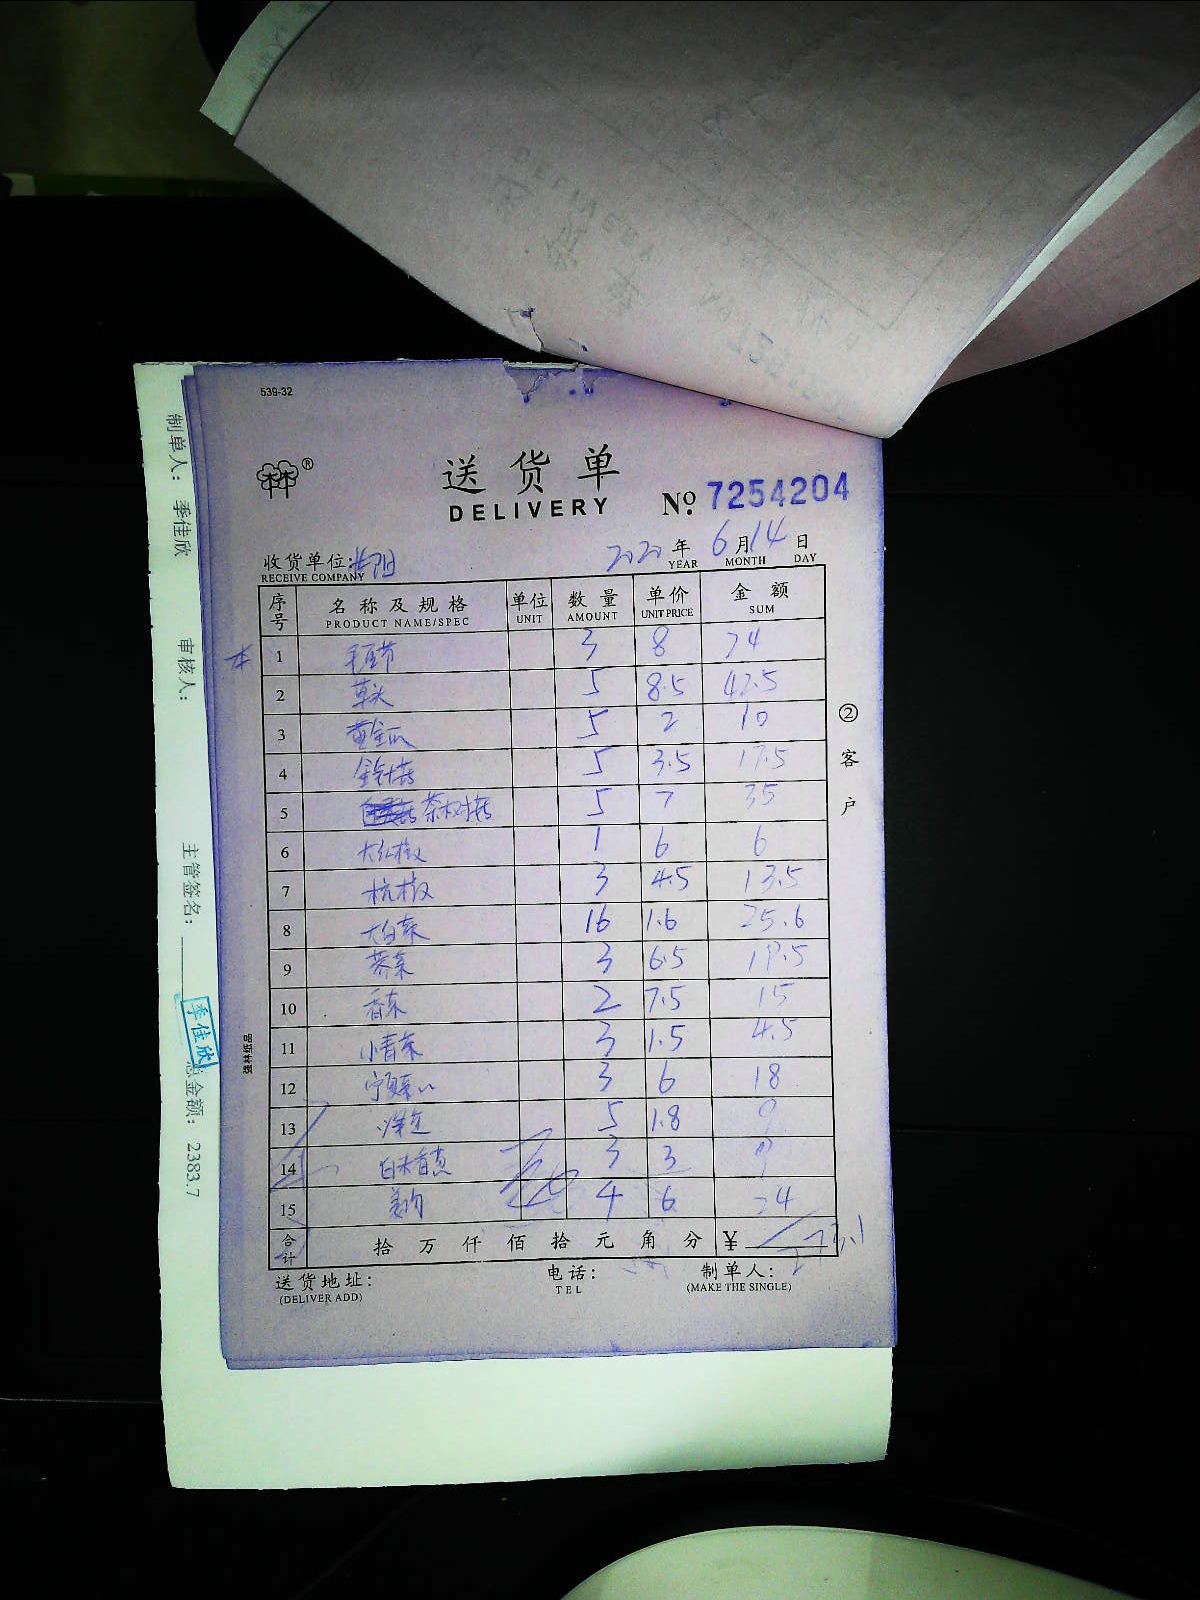 539-32
送货单
DELIVERY
№ 7254204
收货单位:
RECEIVE COMPANY
2020年 6月14日
YEAR MONTH DAY
序号 名称及规格 单位 数量 单价 金额
PRODUCT NAME/SPEC UNIT AMOUNT UNIT PRICE SUM
1 毛豆节 3 8 24
2 草头 5 8.5 42.5
3 黄金瓜 5 2 10
4 金针菇 5 3.5 17.5
5 茶树菇 5 7 35
6 大红椒 1 6 6
7 杭椒 3 4.5 13.5
8 大白菜 16 1.6 25.6
9 荠菜 3 6.5 19.5
10 香菜 2 7.5 15
11 小青菜 3 1.5 4.5
12 宁夏菜心 3 6 18
13 5 1.8 9
14 白米苋 3 3 9
15 姜 4 6 24
合计 拾万仟佰拾元角分 ¥ 273.1
送货地址:
(DELIVER ADD)
电话:
TEL
制单人:
(MAKE THE SINGLE)
②客户
强林纸品
制单人: 季佳欣
审核人:
主管签名:
季佳欣
总金额: 2383.7